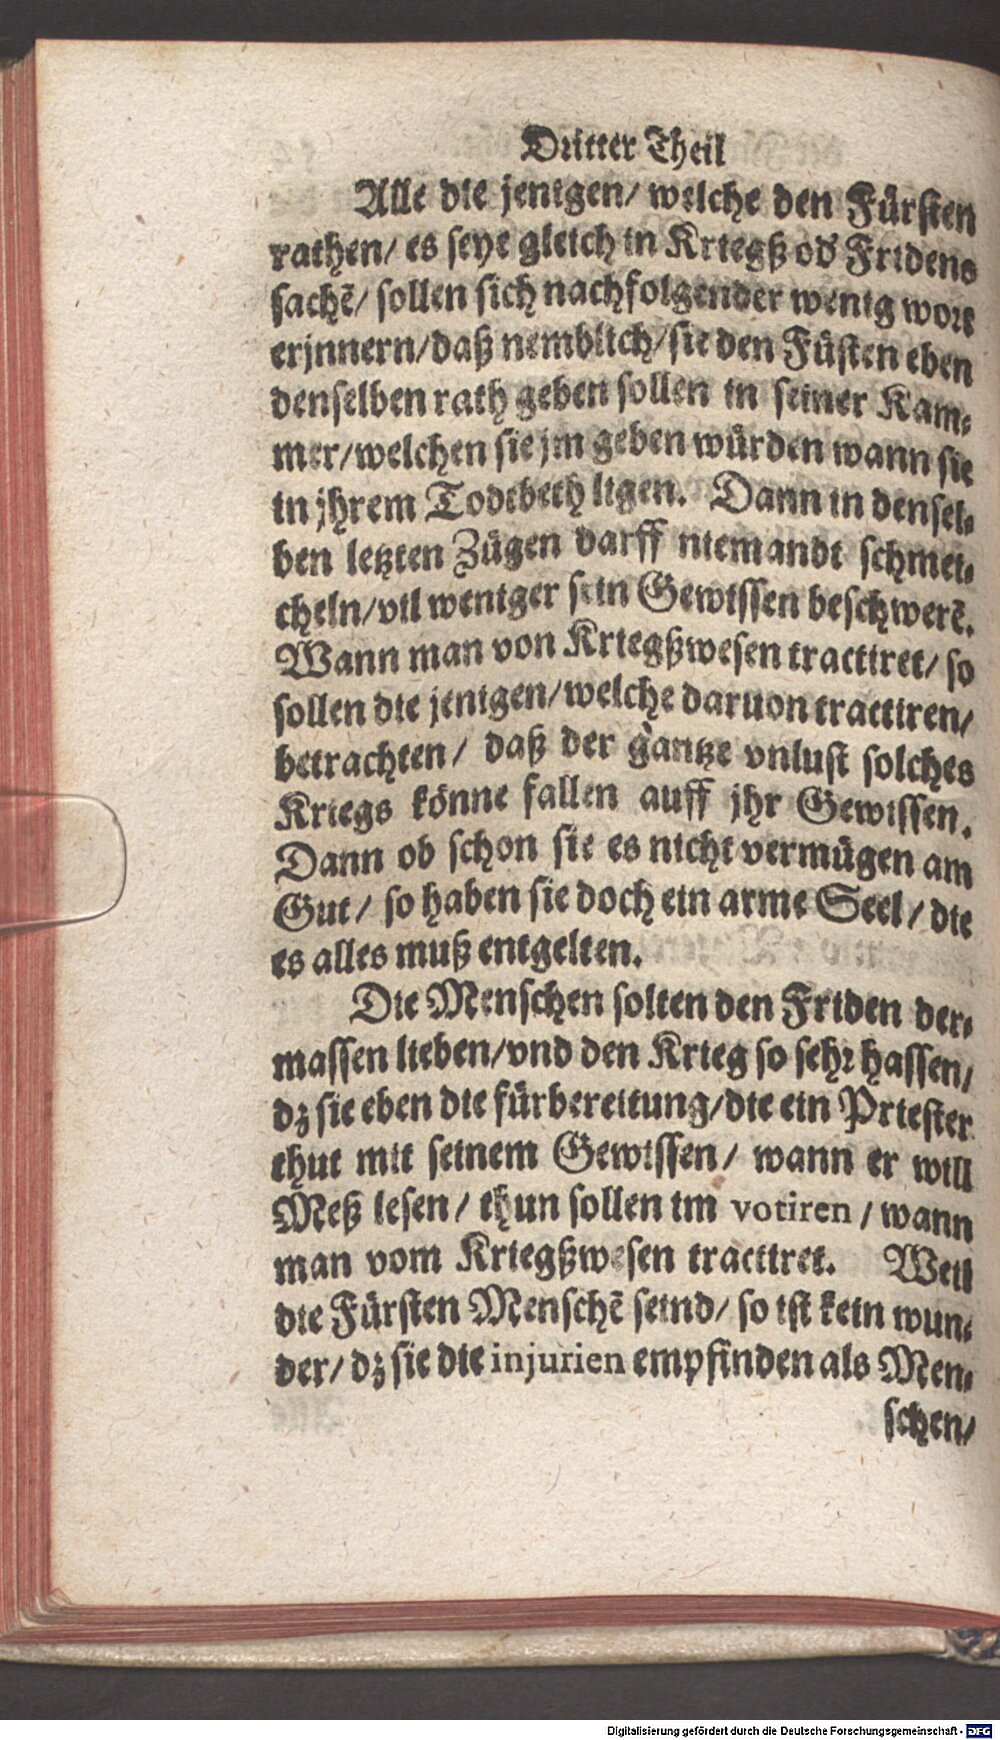 Dritter Theil
Alle die jenigen/ welche den Fürsten
rathen/ es seye gleich in Kriegß od' Fridens
sachē/ sollen sich nachfolgender wenig wort
erjnnern/daß nemblich/sie den Füsten eben
denselben rath geben sollen in seiner Kam-
mer/welchen sie jm geben würden wann sie
in jhrem Todtbeth ligen. Dann in densel-
ben letzten Zügen darff niemandt schmei-
cheln/vil weniger sein Gewissen beschwerē.
Wann man von Kriegßwesen tractiret/ so
sollen die jenigen/welche daruon tractiren/
betrachten/ daß der gantze vnlust solches
Kriegs könne fallen auff jhr Gewissen.
Dann ob schon sie es nicht vermügen am
Gut/ so haben sie doch ein arme Seel/ die
es alles muß entgelten.
Die Menschen solten den Friden der-
massen lieben/vnd den Krieg so sehr hassen/
dz sie eben die fürbereitung/die ein Priester
thut mit seinem Gewissen/ wann er will
Meß lesen/ thun sollen im votiren/ wann
man vom Kriegßwesen tractiret. Weil
die Fürsten Menschē seind/ so ist kein wun-
der/ dz sie die injurien empfinden als Men-
schen/
Digitalisierung gefördert durch die Deutsche Forschungsgemeinschaft - DFG